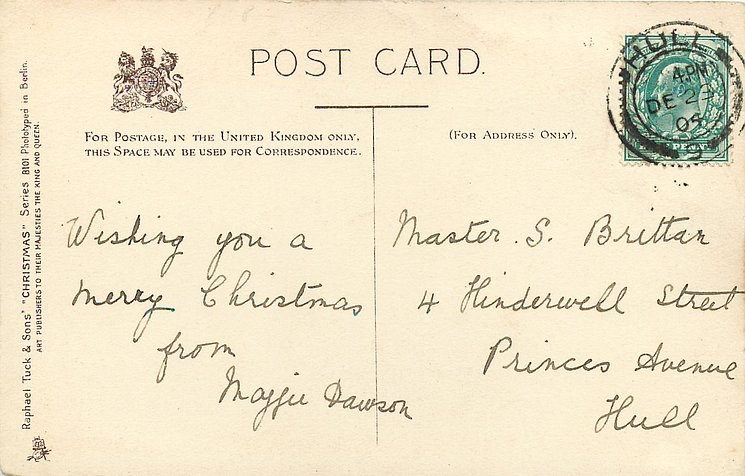 POST CARD.
FOR POSTAGE, IN THE UNITED KINGDOM ONLY,
THIS SPACE MAY BE USED FOR CORRESPONDENCE.
(FOR ADDRESS ONLY).
Raphael Tuck & Sons' "CHRISTMAS" Series 8101 Phototyped in Berlin.
ART PUBLISHERS TO THEIR MAJESTIES THE KING AND QUEEN.
HULL
4PM
DE 23
PENNY
Wishing you a
merry Christmas
from
Dawson
Master. S. Brittan
4 Hinderwell Street
Princes Avenue
Hull